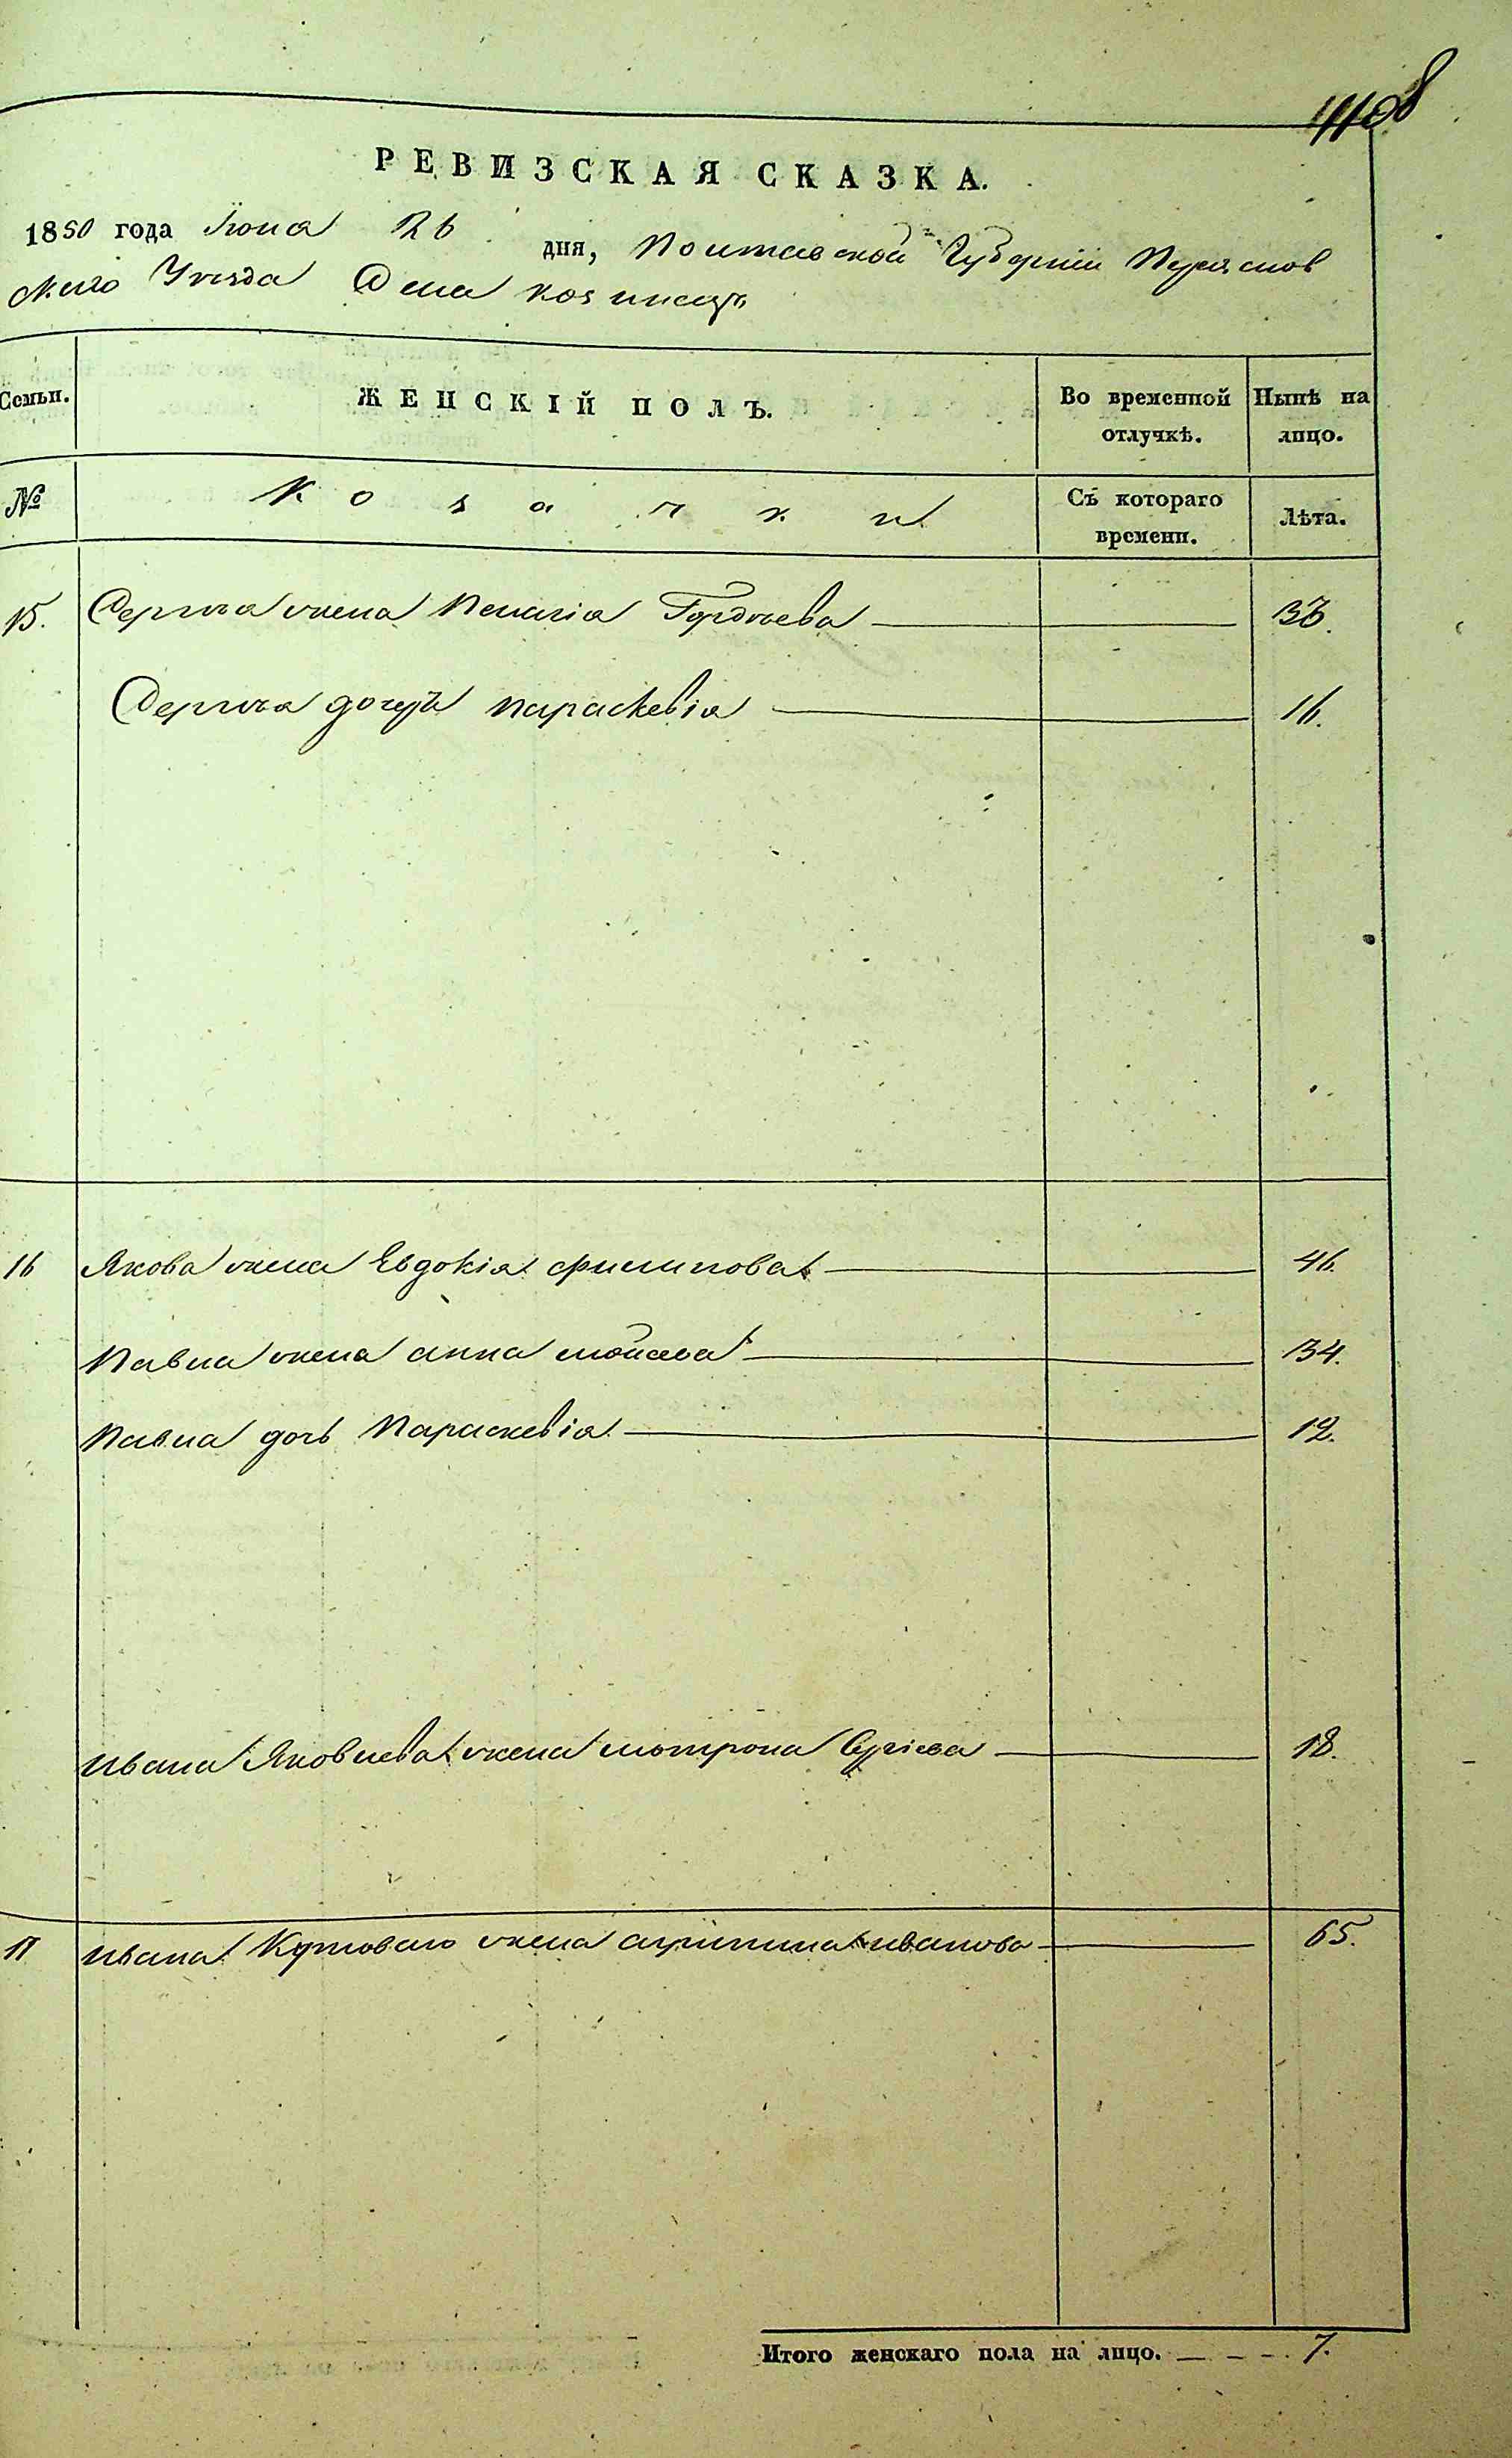 РЕВИЗСКАЯ СКАЗКА.
1850 года Іюна 26 дня, Полтавской Губерніи Переяслов
скаго Уезда Села
Семьи.
ЖЕНСКІЙ ПОЛЪ.
Во временной отлучкѣ.
Нынѣ на лицо.
№
Козачки
Съ котораго времени.
Лѣта.
15. Сергія жена Пелагія Гордѣева 36.
Сергія дочерь Параскевія 16.
16 Якова жена Евдокія Филипова 46.
Павла жена Анна Мойсеева 34.
Павла дочь Параскевія 12.
Ивана Яковлева жена Мотрона 18.
17 Ивана жена Агрипина Иванова 65.
Итого женскаго пола на лицо. 7.